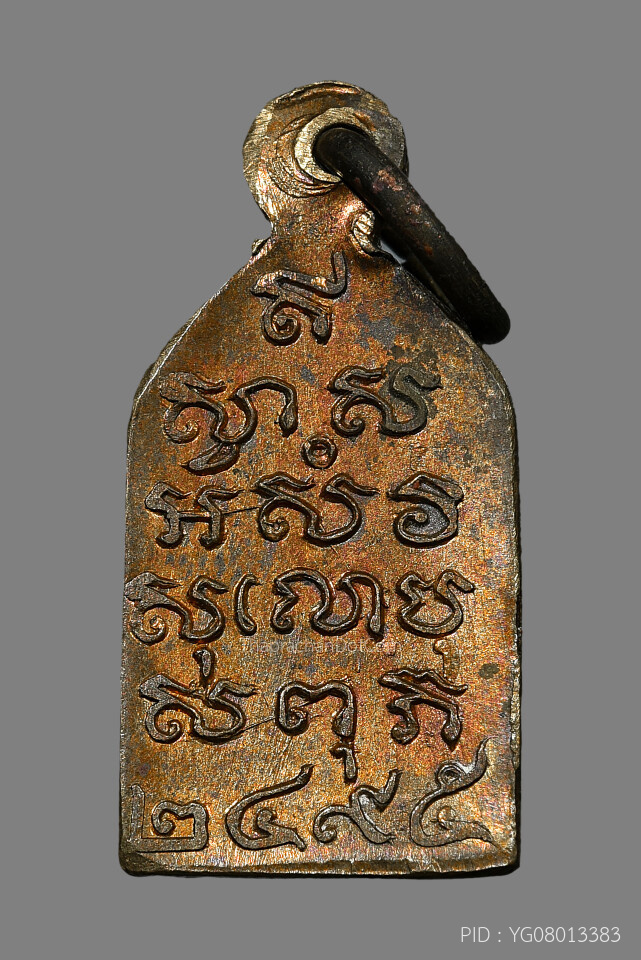 សី
ស្វា ស
អ សំ វិ
សុ លោ បុ
ស ពុ ភ
๒๔๙๕
PID : YG08013383